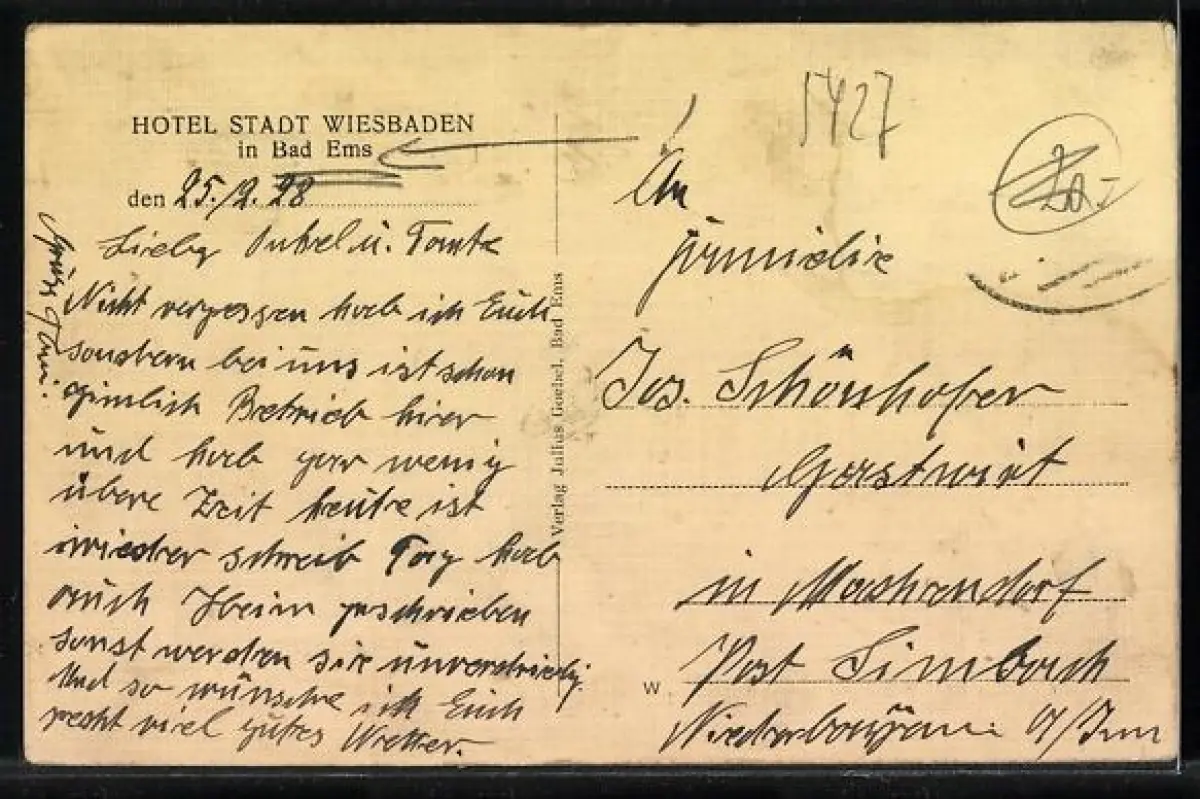 HOTEL STADT WIESBADEN
in Bad Ems
den 25./2. 28
Lieber Onkel u. Tante
Nicht vergessen hab ich Euch
sondern bei uns ist schon
zimlich Betrieb hier
und hab gar wenig
übere Zeit heute ist
wieder schreib Tag hab
auch Heim geschrieben
sonst werden sie
Und so wünsche ich Euch
recht viel gutes Wetter.
Grüss
Verlag Julius Goebel, Bad Ems
5427
An
Familie
Jos. Schönhofer
Gastwirt
in
Post Simbach
W
Niederbayern a/Inn